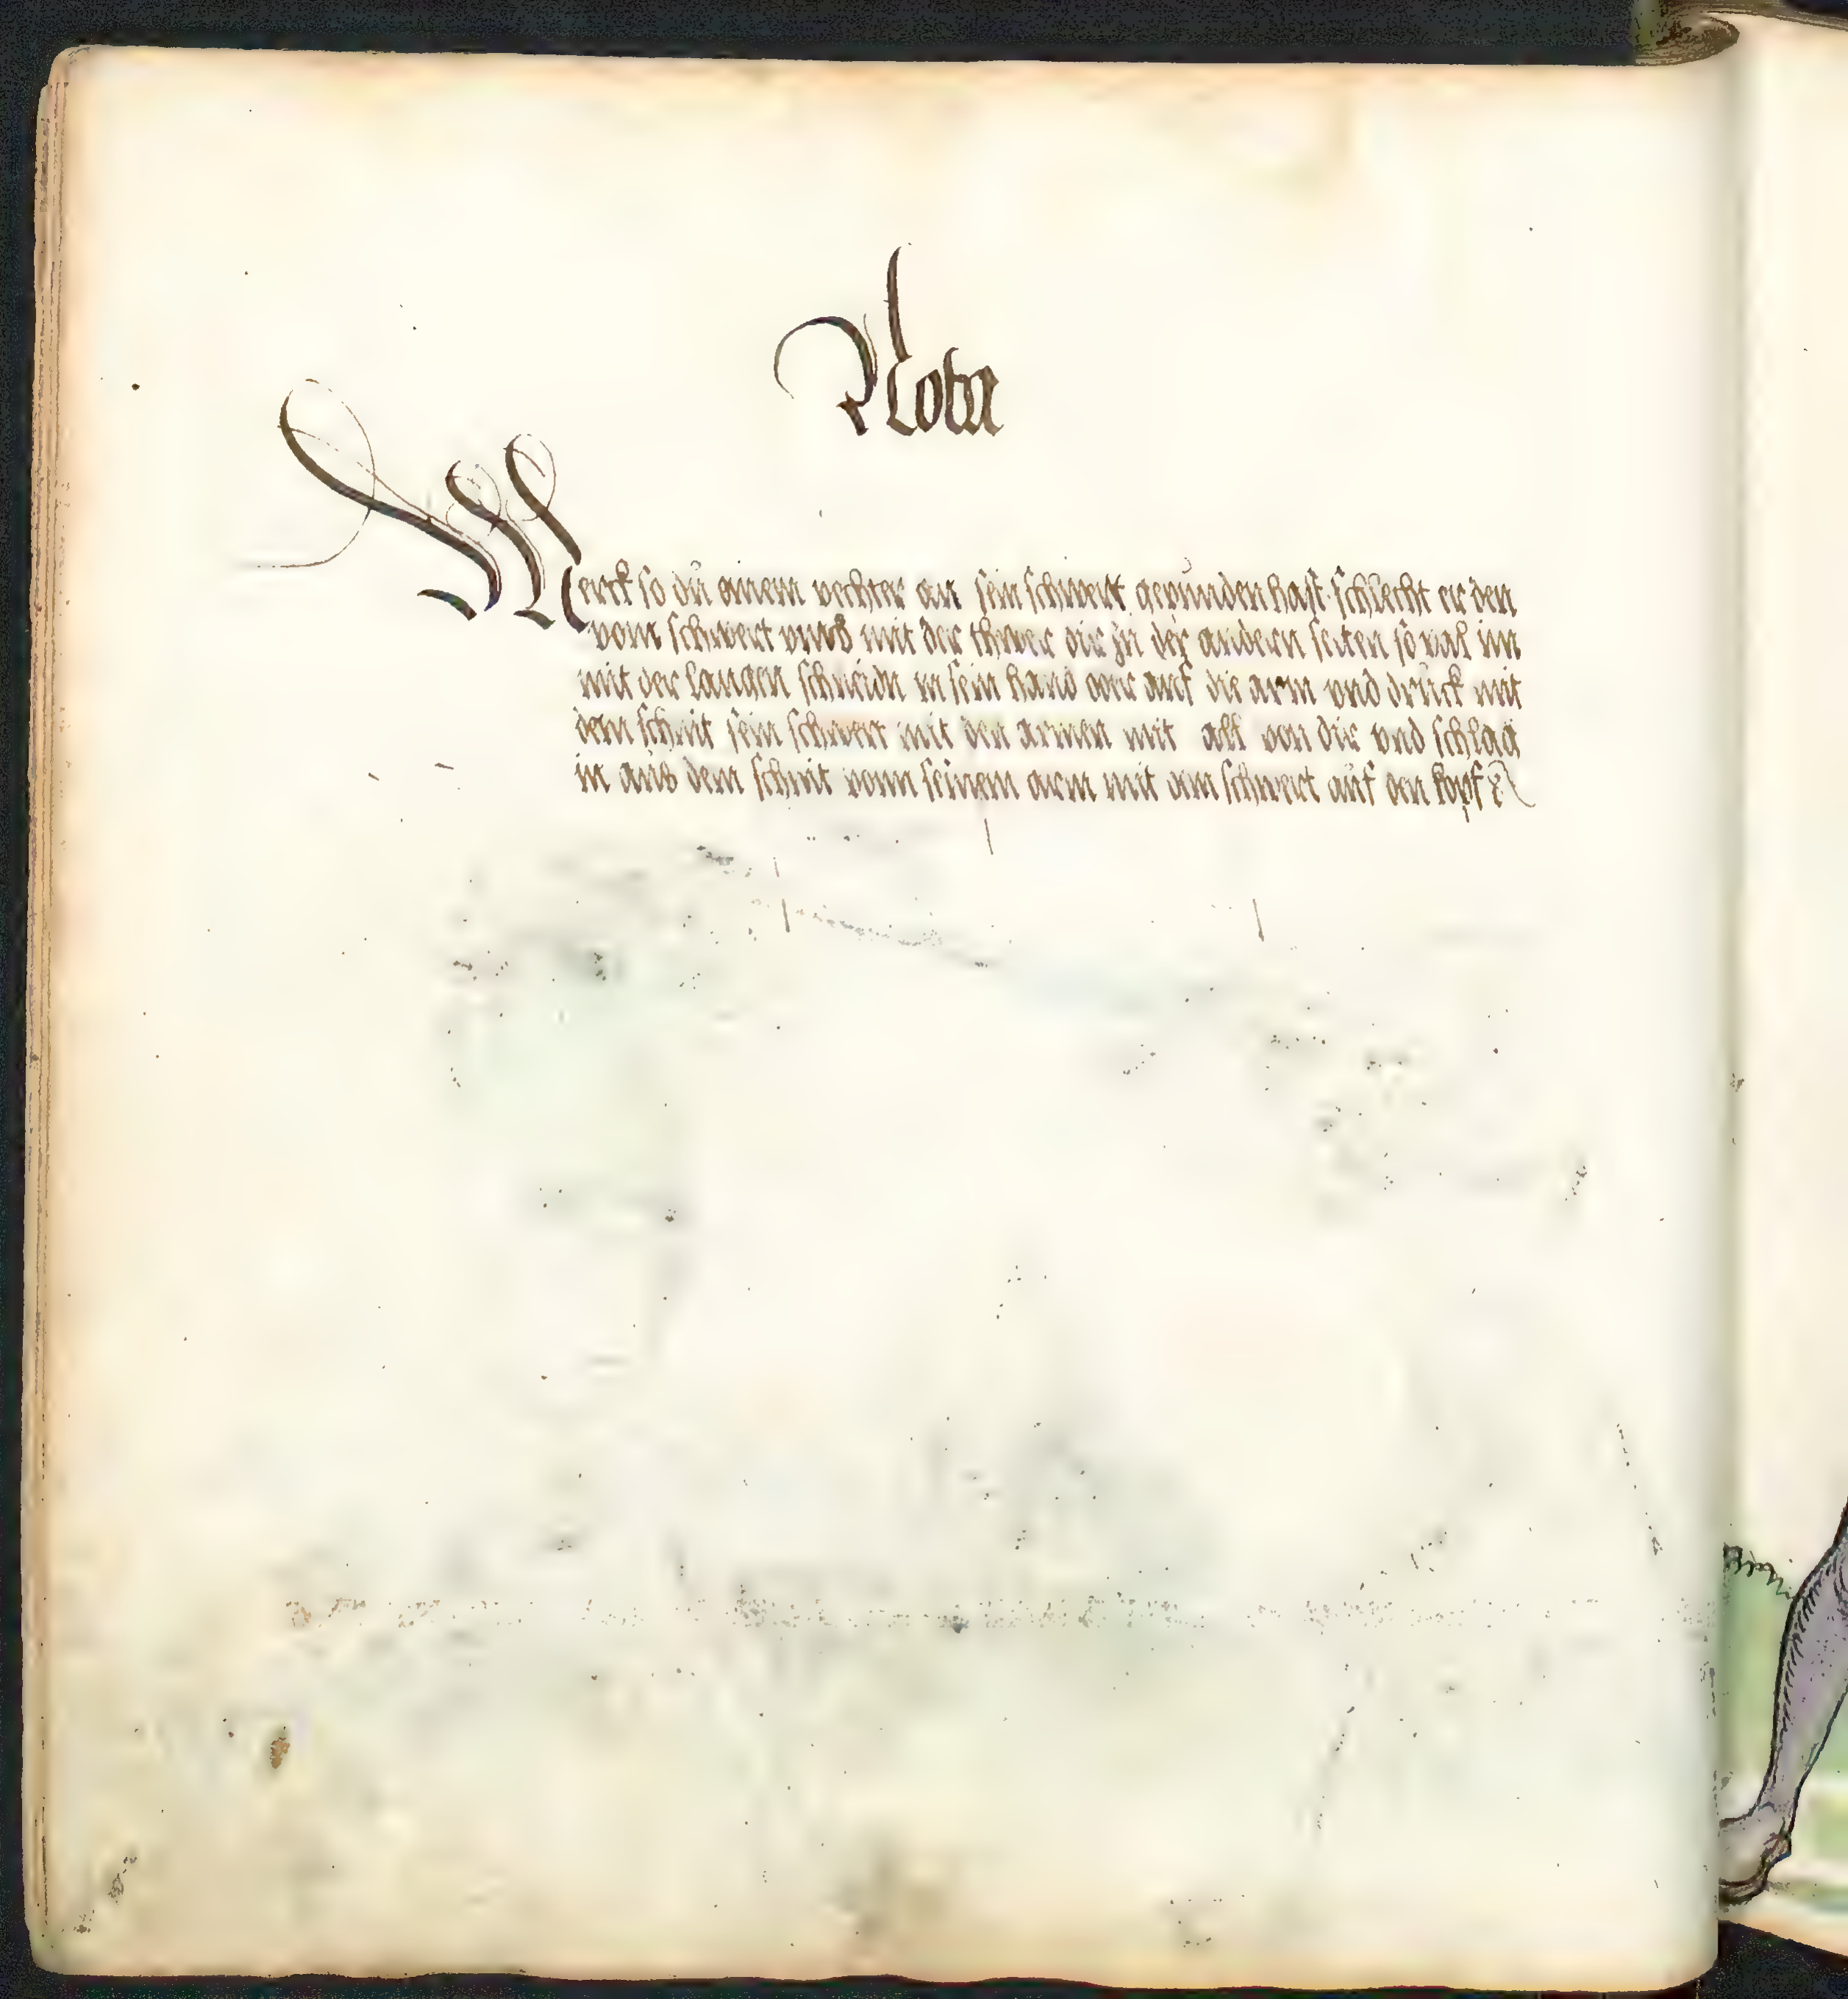 Nota
Merck so du ainem vechter an sein schwert gepunden hast schlecht er den
vom schwert vmb mit der thwer dir zu der andern seiten so val im
mit der langen schneidn in sein hand oder auf die arm vnd druck mit
dem schnit sein schwert mit den armen mit all von dir vnd schlag
in auß dem schnit vonn seinem arm mit dem schwert auf den kopf